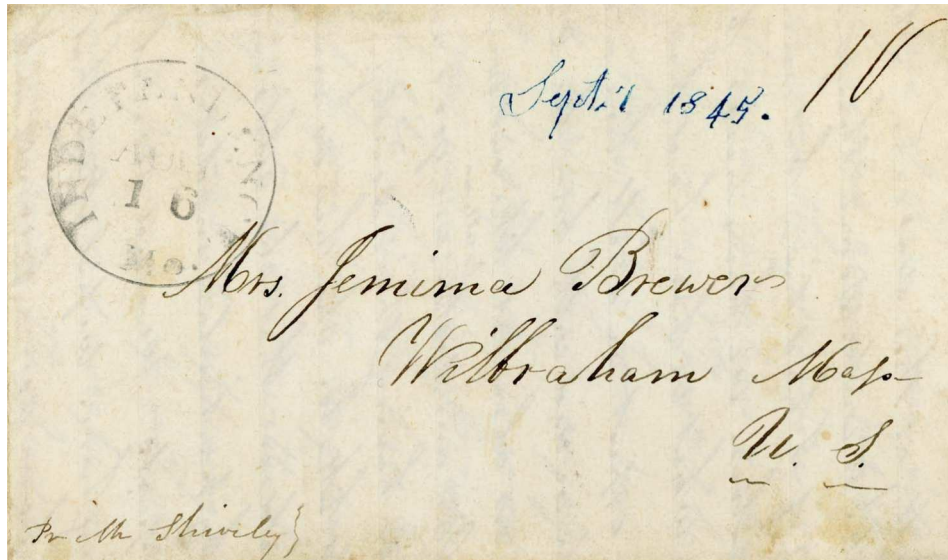 INDEPENDENCE
AUG
16
Mo.
Sept. 1 1845.
10
Mrs. Jemima Brewer
Wilbraham Mass
U. S.
Pr Mr Shively